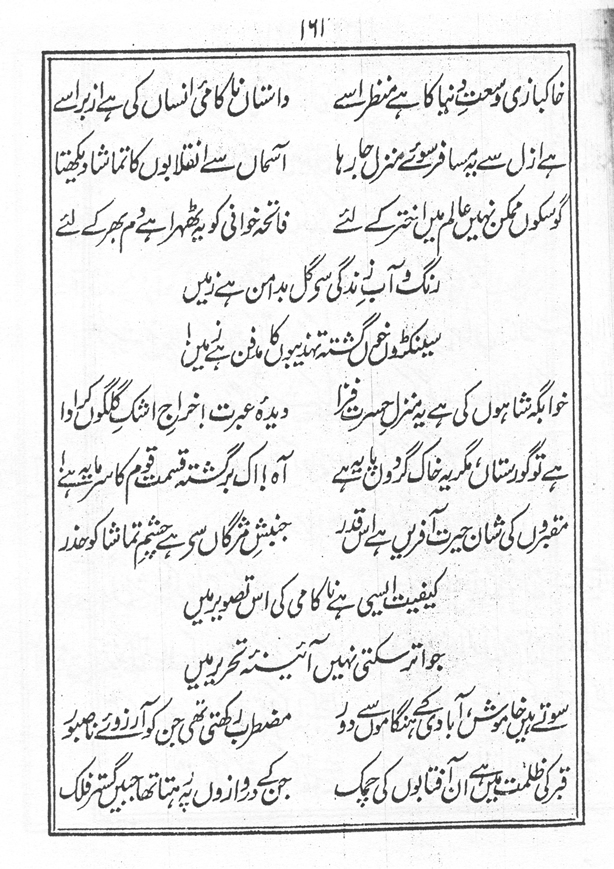 ۱۶۱
خاکبازی وسعت دنیا کا ہے منظر اسے داستاں ناکامیٔ انساں کی ہے ازبر اسے
ہے ازل سے یہ مسافر سوئے منزل جا رہا آسماں سے انقلابوں کا تماشا دیکھتا
گو سکوں ممکن نہیں عالم میں اختر کے لئے فاتحہ خوانی کو یہ ٹھہرا ہے دم بھر کے لئے
رنگ و آبِ زندگی سے گل بدامن ہے زمیں
سینکڑوں خوں گشتہ تہذیبوں کا مدفن ہے زمیں!
خوابگہ شاہوں کی ہے یہ منزلِ حسرت فزا دیدۂ عبرت! خراجِ اشکِ گلگوں کر ادا
ہے تو گورستاں، مگر یہ خاک گردوں پایہ ہے آہ! اک برگشتہ قسمت قوم کا سرمایہ ہے!
مقبروں کی شان حیرت آفریں ہے اس قدر جنبشِ مژگاں سے ہے چشمِ تماشا کو حذر
کیفیت ایسی ہے ناکامی کی اس تصویر میں
جو اتر سکتی نہیں آئینۂ تحریر میں
سوتے ہیں خاموش، آبادی کے ہنگاموں سے دور مضطرب رکھتی تھی جن کو آرزوئے ناصبور
قبر کی ظلمت میں ہے ان آفتابوں کی چمک جن کے دروازوں پہ رہتا تھا جبیں گستر فلک